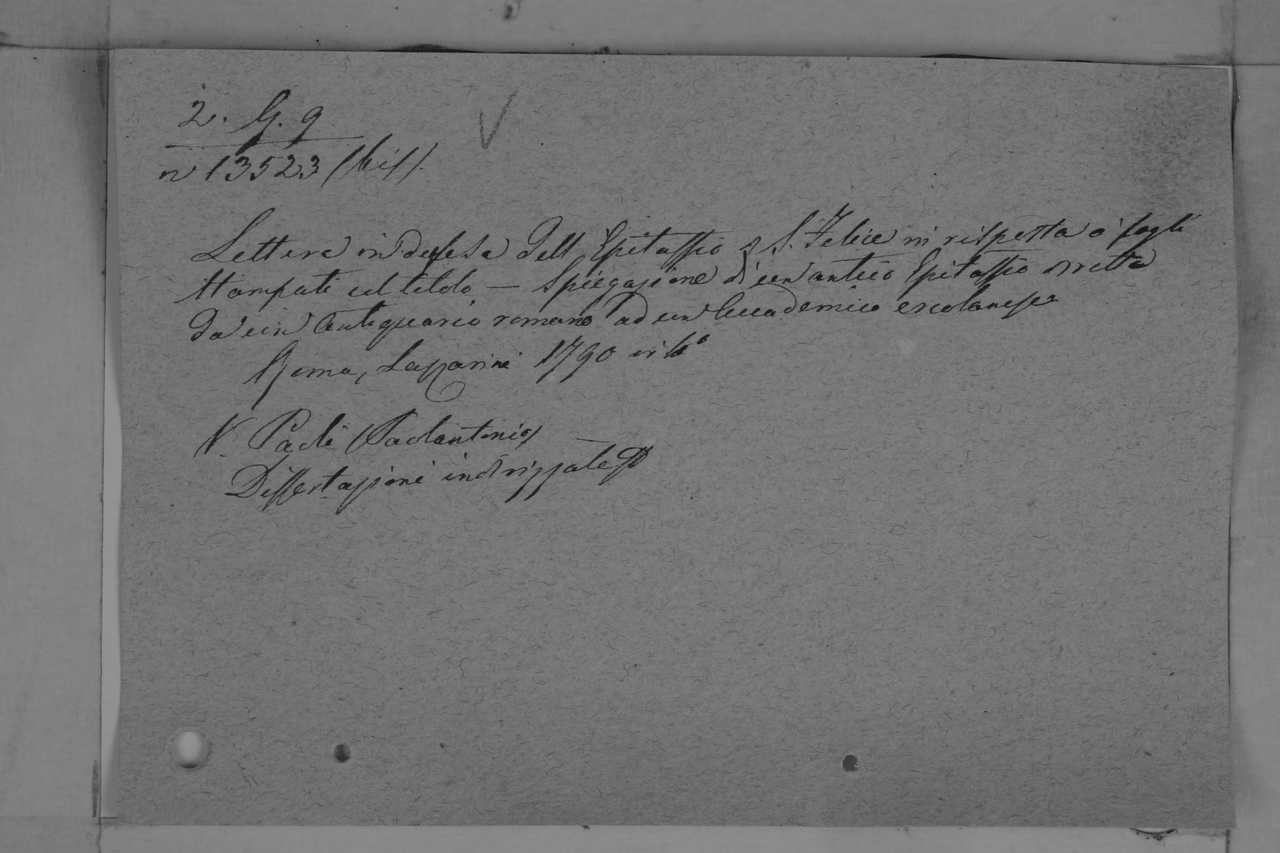 2. G. g
n 13523 (bis).
Lettera in difesa dell Epitaffio di S. Felice in risposta a' fogli
stampati col titolo — Spiegazione d'un antico Epitaffio diretta
da un antiquario romano ad un Accademico ercolanese
Roma, Lazzarini 1790 in
V. Paoli (Paolantonio)
Dissertazioni indirizzate